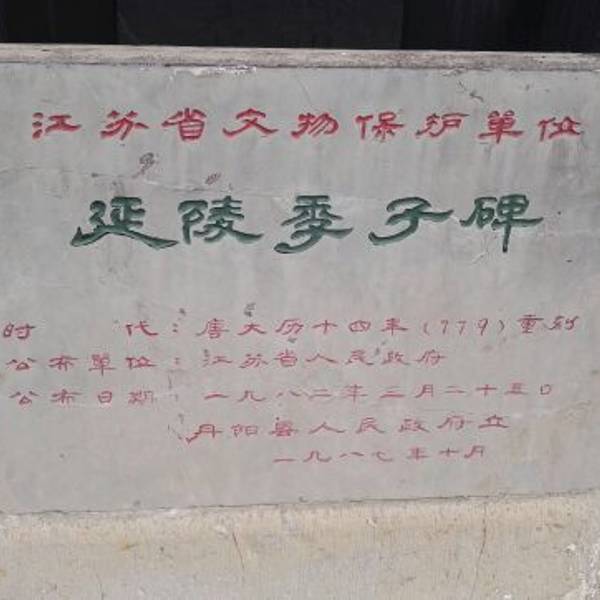 江苏省文物保护單位
延陵季子碑
时 代：唐大历十四年（779）重刻
公布單位：江苏省人民政府
公布日期：一九八二年三月二十五日
丹阳县人民政府立
一九八七年十月